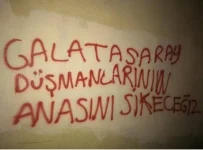 GALATASARAY
DÜŞMANLARININ
ANASINI SİKECEĞİZ